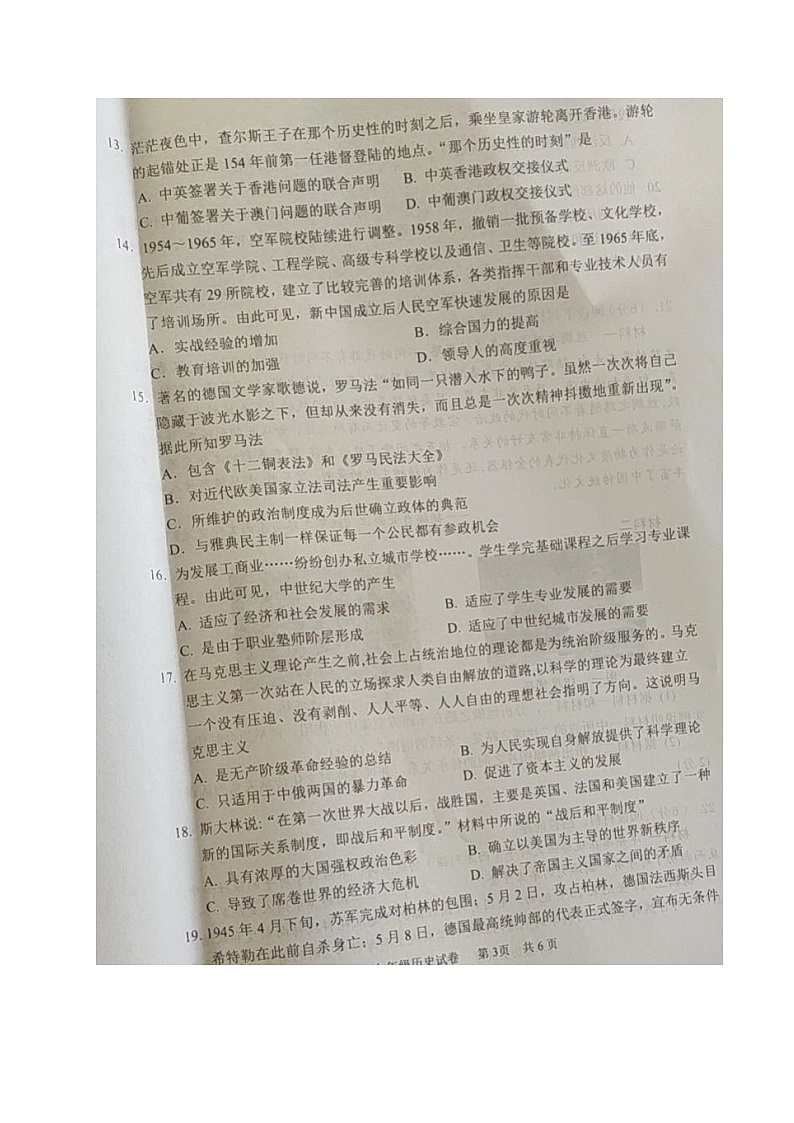 13. 茫茫夜色中，查尔斯王子在那个历史性的时刻之后，乘坐皇家游轮离开香港。游轮
的起锚处正是 154 年前第一任港督登陆的地点。“那个历史性的时刻”是
A. 中英签署关于香港问题的联合声明 B. 中英香港政权交接仪式
C. 中葡签署关于澳门问题的联合声明 D. 中葡澳门政权交接仪式
14. 1954～1965 年，空军院校陆续进行调整。1958 年，撤销一批预备学校、文化学校，
先后成立空军学院、工程学院、高级专科学校以及通信、卫生等院校。至 1965 年底，
空军共有 29 所院校，建立了比较完善的培训体系，各类指挥干部和专业技术人员有
了培训场所。由此可见，新中国成立后人民空军快速发展的原因是
A. 实战经验的增加 B. 综合国力的提高
C. 教育培训的加强 D. 领导人的高度重视
15. 著名的德国文学家歌德说，罗马法“如同一只潜入水下的鸭子。虽然一次次将自己
隐藏于波光水影之下，但却从来没有消失，而且总是一次次精神抖擞地重新出现”。
据此所知罗马法
A. 包含《十二铜表法》和《罗马民法大全》
B. 对近代欧美国家立法司法产生重要影响
C. 所维护的政治制度成为后世确立政体的典范
D. 与雅典民主制一样保证每一个公民都有参政机会
16. 为发展工商业……纷纷创办私立城市学校……。学生学完基础课程之后学习专业课
程。由此可见，中世纪大学的产生
A. 适应了经济和社会发展的需求 B. 适应了学生专业发展的需要
C. 是由于职业塾师阶层形成 D. 适应了中世纪城市发展的需要
17. 在马克思主义理论产生之前,社会上占统治地位的理论都是为统治阶级服务的。马克
思主义第一次站在人民的立场探求人类自由解放的道路,以科学的理论为最终建立
一个没有压迫、没有剥削、人人平等、人人自由的理想社会指明了方向。这说明马
克思主义
A. 是无产阶级革命经验的总结 B. 为人民实现自身解放提供了科学理论
C. 只适用于中俄两国的暴力革命 D. 促进了资本主义的发展
18. 斯大林说:“在第一次世界大战以后，战胜国，主要是英国、法国和美国建立了一种
新的国际关系制度，即战后和平制度。”材料中所说的“战后和平制度”
A. 具有浓厚的大国强权政治色彩 B. 确立以美国为主导的世界新秩序
C. 导致了席卷世界的经济大危机 D. 解决了帝国主义国家之间的矛盾
19. 1945 年 4 月下旬，苏军完成对柏林的包围；5 月 2 日，攻占柏林，德国法西斯头目
希特勒在此前自杀身亡；5 月 8 日，德国最高统帅部的代表正式签字，宣布无条件
年级历史试卷 第 3页 共 6 页